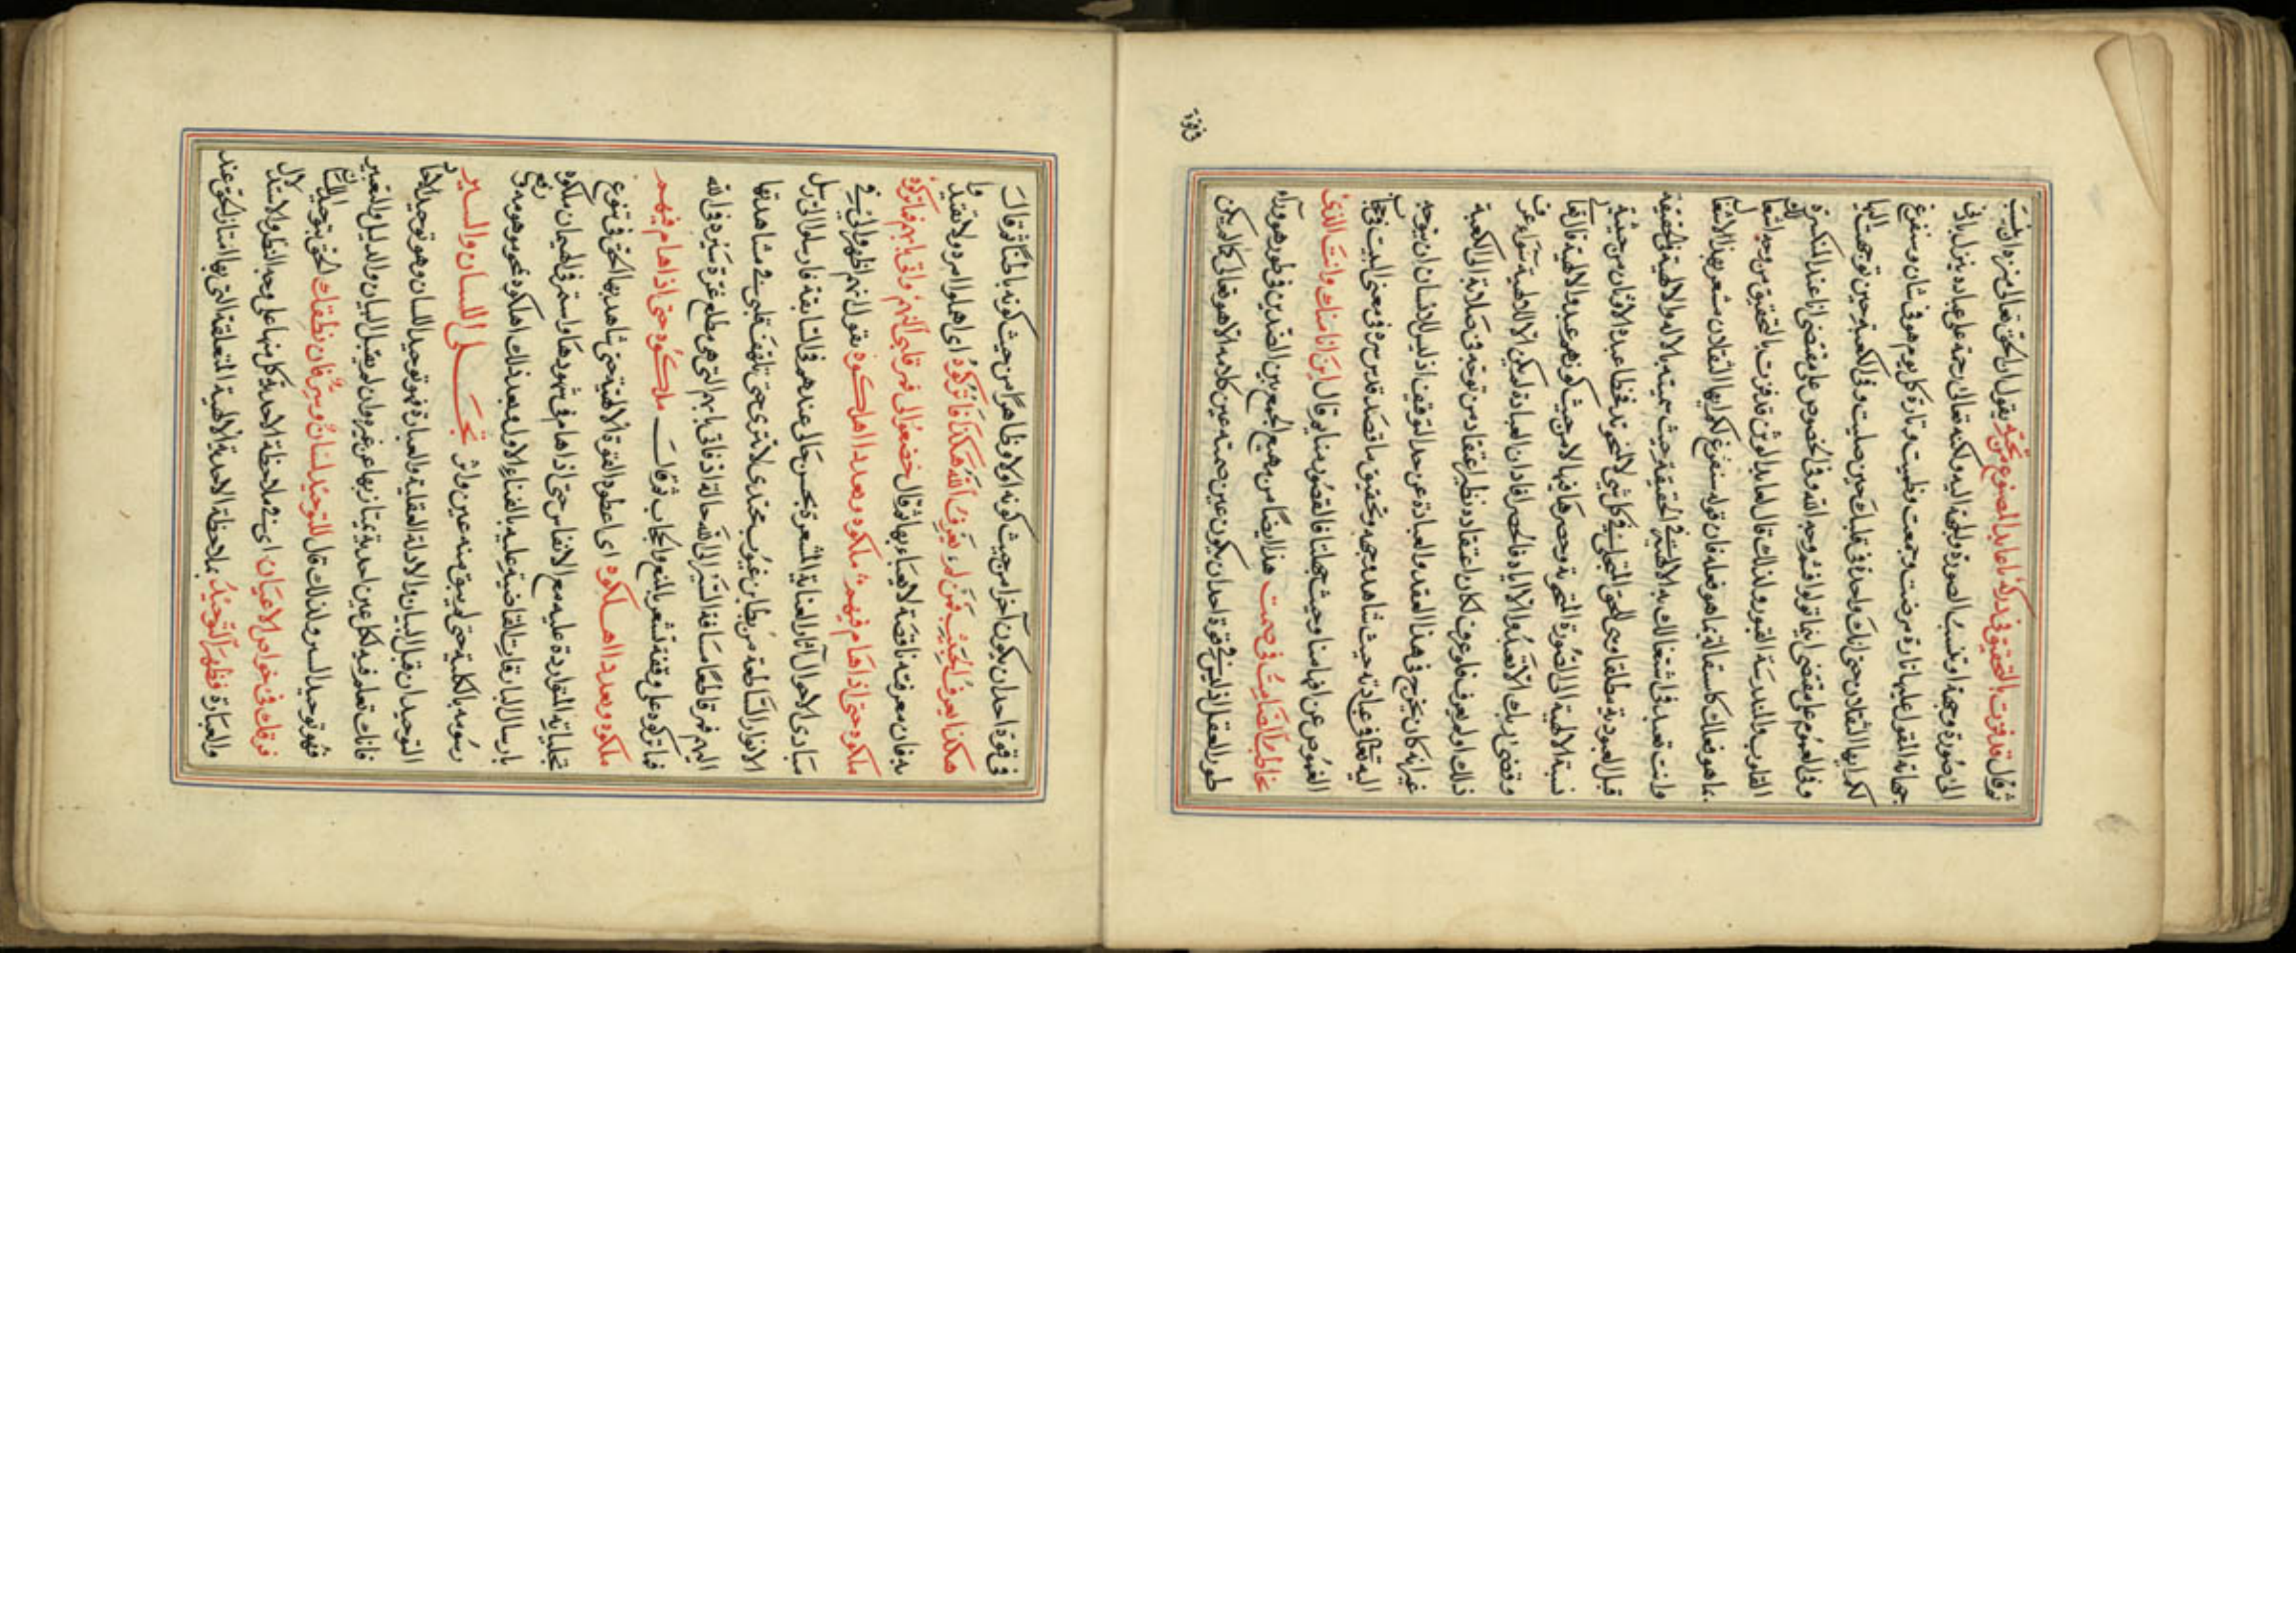 ثم قال قد فزت بالتحقيق في دركه يا عابد المصنوع من نحته يقول ان الحق تعالى منزه ان ينسب
الى صورة وجهة او تنسب الصورة والجهة اليه ولكنه تعالى رحمة على عباده ينزل
القول عليها تارة مرضت وجعت وظمئت وتارة كل يوم هو في شان وسنفرغ
لكم ايها الثقلان حتى انك واحدة في قلبك حين صليت وفي الكعبة حين توجهت اليها
وفي العموم على مقتضى اينما تولوا فثم وجه الله وفي الخصوص على مقتضى انا عند المنكسرة
القلوب والمندرسة القبور ولذلك قال لعابد الوثن قد فزت بالتحقيق من وجه اشتغالك
بما هو فعلك بما هو فعله فان قوله سنفرغ لكم ايها الثقلان مشعر بهذا الاشتغال
وانت تعبد في اشتغالك به الالهية في الحقيقة حيث سميته بالاله والالهية في الحقيقة
قبل العبودية مطلقا وهي للحق المتجلي في كل شيء لا للمنحوت فخطا عبدة الاوثان من حيثية
نسبة الالهية الى الصورة المنحوتة وحصرها فيها لا من حيث كونهم عبدوا الالهية قال تعالى
وقضى ربك الا تعبدوا الا اياه فالحصر افاد ان العبادة لم تكن الا للالهية سواء عرف
ذلك او لم يعرف فلو عرف لكان اعتقاده نظير اعتقاد من توجه في صلاته الى الكعبة
غير انه كان يخرج في هذا العقد والعبادة عن حد التوقيف اذ ليس للانسان ان يتوجه
اليه تعالى في عبادته حيث شاهد وجهه وتحقيق ما قصد قدس سره في معنى البيت في حجاب
الغموض عن افهامنا وحيث جهلنا فالقصور منا ثم قال اين انا منك وانت الذي
تخاطب الصامت في صمت هذا ايضا من مهيع الجمع بين الضدين في طور هو وراء
طور العقل اذ ليس في قوة احد ان يكون عين صمته عين كلامه الا هو تعالى كما لم يكن
في قوة احد ان يكون آخرا من حيث كونه اولا وظاهرا من حيث كونه باطنا ثم قال
هكذا يعرف الحبيب فمن لم يعرف الله هكذا فاتركوه اي اهملوا امره ولا تعتدوا
به فان معرفته ناقصة لا يعباء بها ثم قال خضعوا لي فمر قلبي اليهم واتى بابهم فما تركوه
ملكوه وبعد ذا اهلكوه ملكوه حتى اذا هام فيهم يقول انهم اظهروا لي في
مبادى الاحوال آثار العناية المشعرة بحسن حالي عندهم في السابقة فارسلوا الي رسل
الانوار الساطعة من بطائن غيوب محتدى لا تترى حتى تلهف قلبي في مشاهدتها
اليهم فمر قاطعا مسافة السير الى الله فاتى بابهم التي هي مطلع غرة سيره في الله
فما تركوه على وقفة تشعر بالمنع والحجاب ثم قال ملكوه حتى اذا هام فيهم
ملكوه وبعد ذا اهلكوه اي اعطوه القوة الالهية حتى شاهد بها الحق في تنوع
تجلياته المتواردة عليه مع الانفاس حتى اذا هام في شهودها واستمر في الهيمان ملكوه
بارسال البارقات القاضية عليه بالفناء الاول وبعد ذلك اهلكوه بمحو موهومه في رفع
رسومه بالكلية حتى لم يبق منه عين ولا اثر تجلي اللسان والسر
التوحيد ان قبل البيان والادلة العقلية والعبارة فهو توحيد اللسان وهو توحيد
فانك تعلم فيه لكل عين احدية يمتاز بها عن غيره وان لم يقبل البيان والدليل والتعبير
فهو توحيد السر ولذلك قال للتوحيد لسان وسر فان نطقك الحق بتوحيد اللسان
فرقك في خواص الاعيان اي في ملاحظة الاحدية كل منها على وجه النظر والاستدلال
والعبارة فظهر التوحيد بملاحظة الاحدية الالهية المتعلقة التي بها امتاز الحق عند